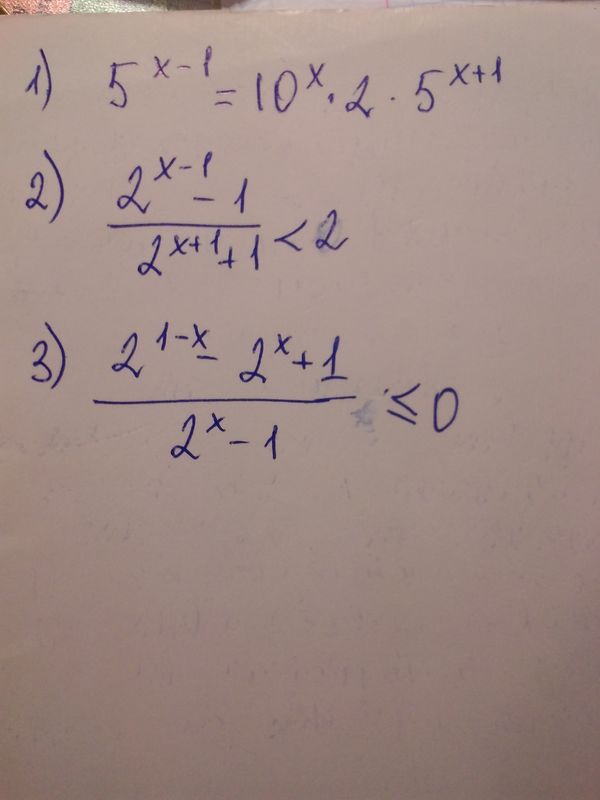 1) 5^{x-1} = 10^x · 2 · 5^{x+1}
2) \frac{2^{x-1} - 1}{2^{x+1} + 1} < 2
3) \frac{2^{1-x} - 2^x + 1}{2^x - 1} ≤ 0